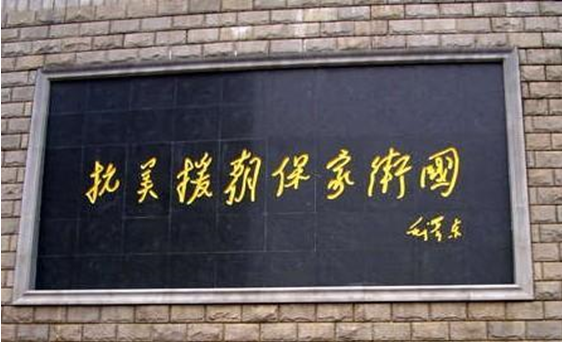 抗美援朝保家衛國
毛澤东